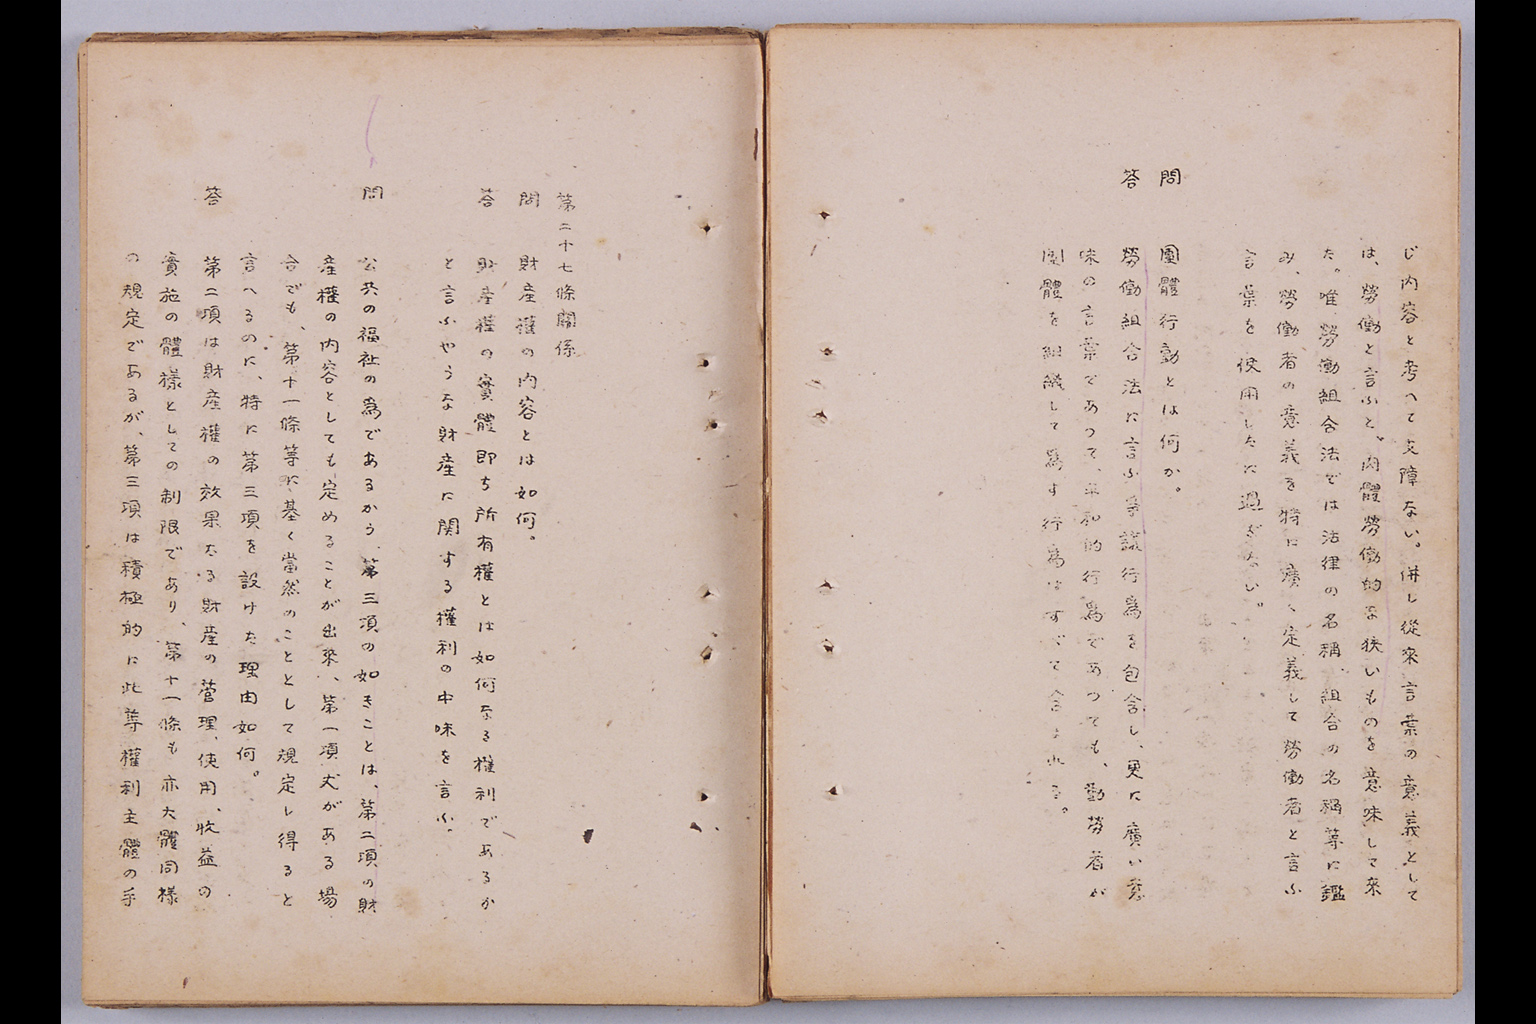 じ内容と考へて支障ない。併し從來言葉の意義として
は、勞働と言ふと、肉體勞働的な狹いものを意味して來
た。唯勞働組合法では法律の名稱、組合の名稱等に鑑
み、勞働者の意義を特に廣く定義して勞働者と言ふ
言葉を使用したに過ぎない。
問 團體行動とは何か。
答 勞働組合法に言ふ爭議行爲を包含し、更に廣い意
味の言葉であつて、平和的行爲であつても、勤勞者が
團體を組織して爲す行爲はすべて含まれる。
第二十七條關係
問 財産權の内容とは如何。
答 財産權の實體即ち所有權とは如何なる權利であるか
と言ふやうな財産に関する權利の中味を言ふ。
問 公共の福祉の爲であるから、第三項の如きことは、第二項の財
産權の内容としても定めることが出來、第一項丈がある場
合でも、第十一條等に基く當然のこととして規定し得ると
言へるのに、特に第三項を設けた理由如何。
答 第二項は財産權の效果たる財産の管理、使用、收益の
實施の體樣としての制限であり、第十一條も亦大體同樣
の規定であるが、第三項は積極的に此等權利主體の手